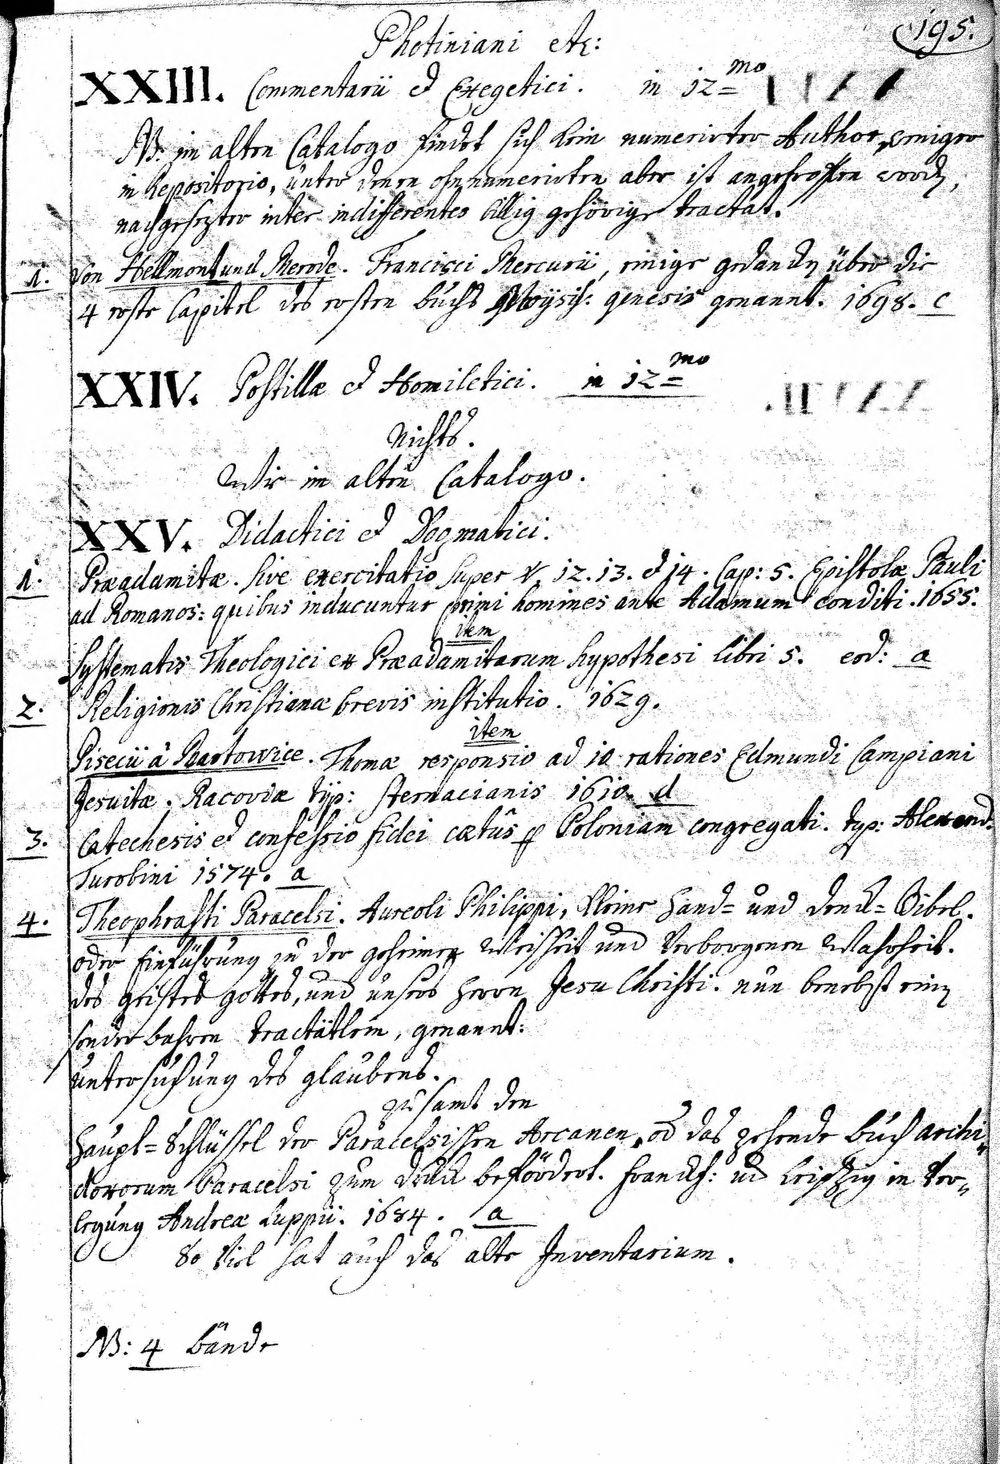 195.
Photiniani etc:
XXIII. Commentarii et Exegetici. in 12=mo
NB: im alten Catalogo findet sich kein numerirter Author, einiger
in Repositorio, unter denen ohnnumerirten aber ist angetroffen word,
nachgesezter inter indifferentes billig gehörige tractat.
1. Von Hellmont und Merode. Francisci Mercurii, einige gedanck über die
4 erste Capitel des ersten buchs Moysis: genesis genannt. 1698. c
XXIV. Postillæ et Homiletici. in 12=mo
Nichts.
Wie im alten Catalogo.
XXV. Didactici et Dogmatici.
1. Præadamitæ. sive exercitatio super V. 12. 13. et 14. Cap: 5. Epistolæ Pauli
ad Romanos: quibus inducuntur primi homines ante Adamum conditi. 1655.
item
Systematis Theologici ex Præadamitarum hypothesi libri 5. eod: a
2. Religionis Christianæ brevis institutio. 1629.
item
Pisecii à Martowice. Thomæ responsio ad 10 rationes Edmundi Campiani
Jesuitæ. Racoviæ typ: sternacianis 1610. d
3. Catechesis et confessio fidei cætûs p Poloniam congregati. typ: Alexand.
Turobini 1574. a
4. Theophrasti Paracelsi. Aureoli Philippi, kleine Hand= und denck=Bibel.
oder Einführung zu der geheimen Weisheit und Verborgenen Wahrheit.
des geistes gottes, und unsers Herrn Jesu Christi. nun benebst ein
sonderbahren tractätlein, genannt:
untersuchung des glaubens.
zusamt den
Haupt=Schlüssel der Paracelsischen Arcanen, od das zehende buch archi„
doxorum Paracelsi zum druck befördert. Franckf: und Leipzig in Ver„
legung Andreæ Luppii. 1684. a
So Viel hat auch das alte Inventarium.
NB: 4 bände